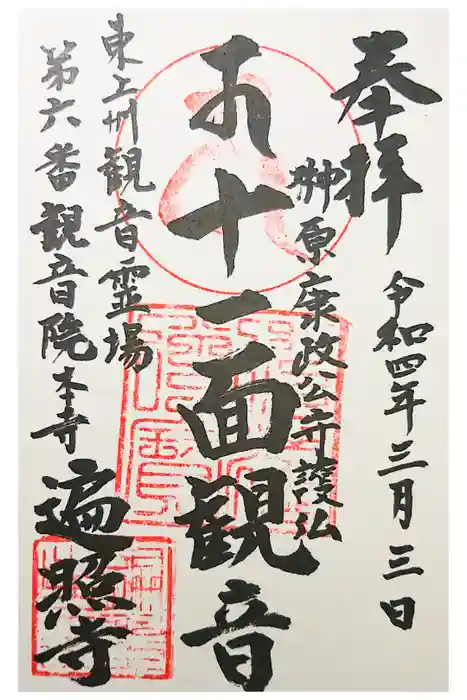 奉拝
令和四年三月三日
榊原康政公守護仏
十一面観音
東上州観音霊場
第六番観音院本寺
遍照寺